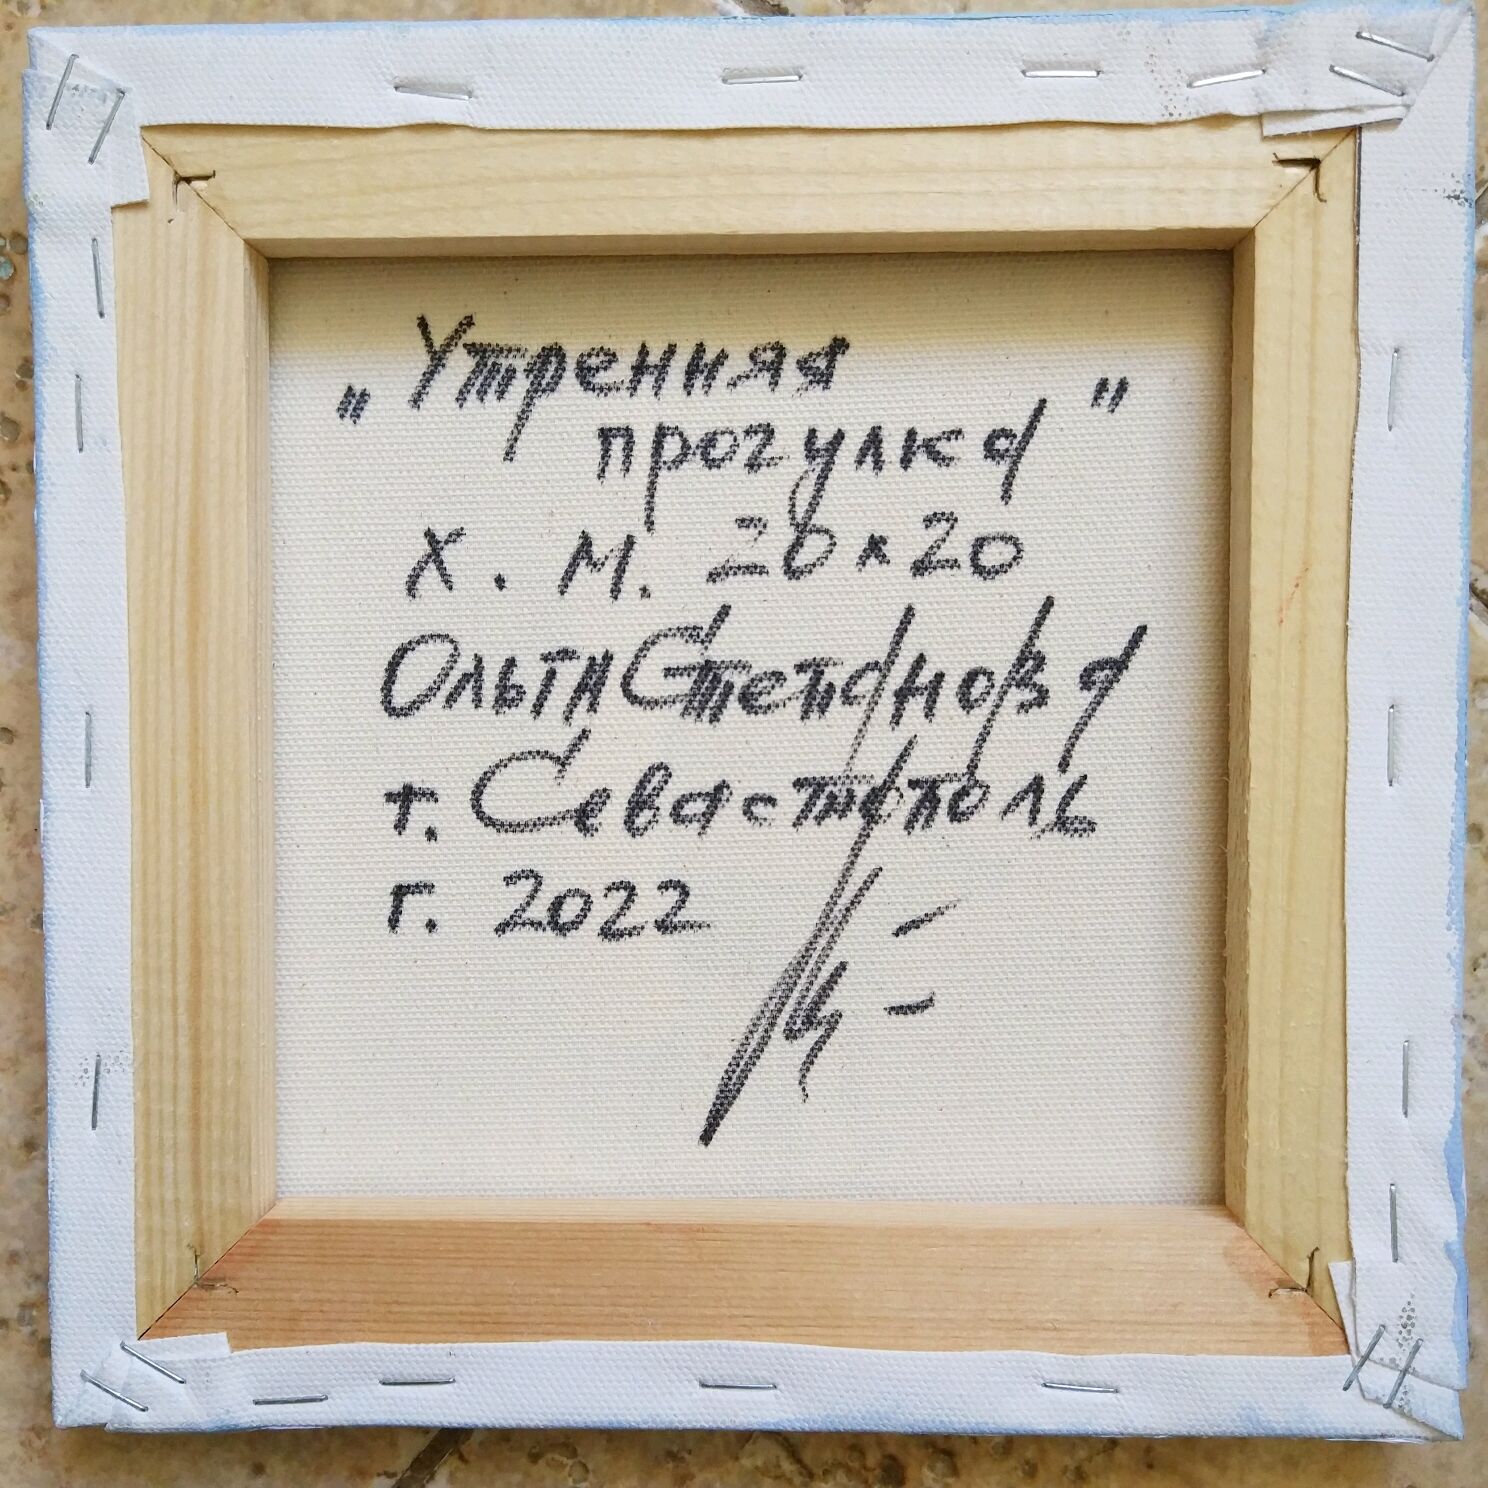 „Утренняя
прогулка"
х. м. 20х20
Ольга Степанова
г. Севастополь
г. 2022